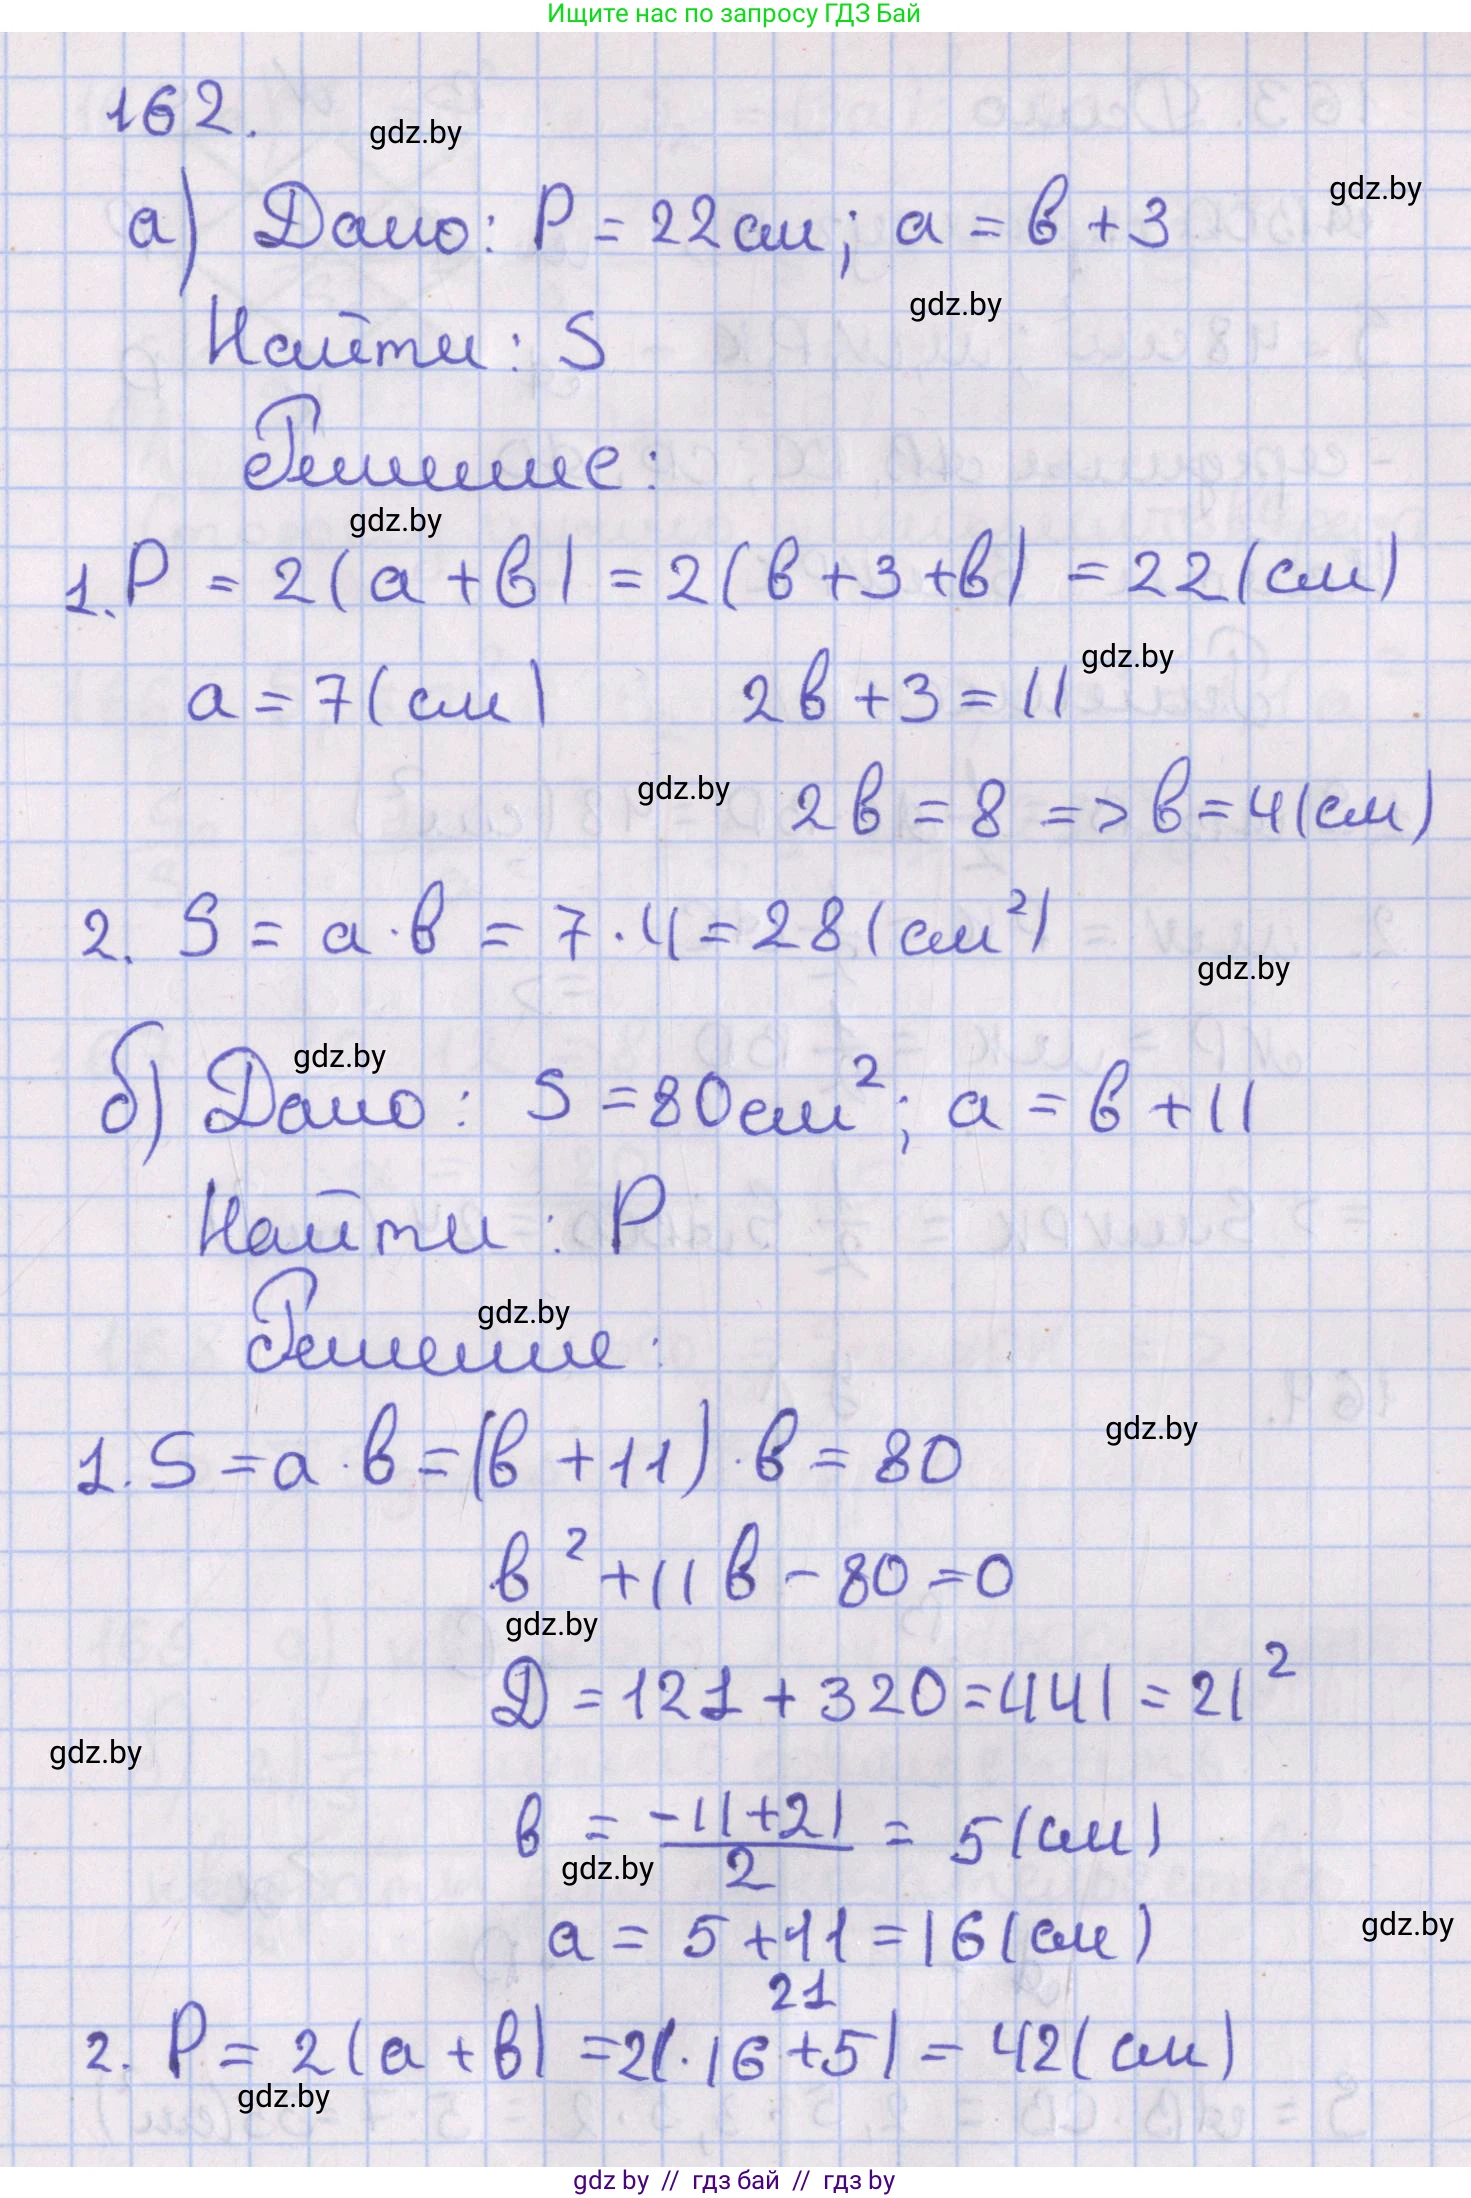 Ищите нас по запросу ГДЗ Бай
162.
gdz.by
а) Дано: P = 22см; a = b + 3
gdz.by
Найти: S
gdz.by
Решение:
gdz.by
1. P = 2(a + b) = 2(b + 3 + b) = 22(см)
a = 7(см) 2b + 3 = 11
gdz.by
2b = 8 => b = 4(см)
gdz.by
2. S = a · b = 7 · 4 = 28(см²)
gdz.by
б) Дано: S = 80см²; a = b + 11
gdz.by
Найти: P
Решение:
gdz.by
1. S = a · b = (b + 11) · b = 80
gdz.by
b² + 11b - 80 = 0
gdz.by
D = 121 + 320 = 441 = 21²
gdz.by
b = (-11+21)/2 = 5(см)
gdz.by
a = 5 + 11 = 16(см)
gdz.by
21
2. P = 2(a + b) = 2(·16 + 5) = 42(см)
gdz.by
gdz by // гдз бай // гдз by